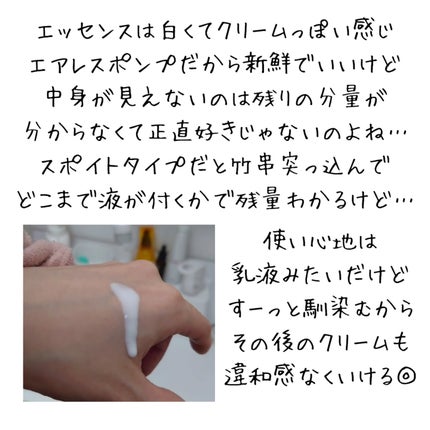 エッセンスは白くてクリームっぽい感じ
エアレスポンプだから新鮮でいいけど
中身が見えないのは残りの分量が
分からなくて正直好きじゃないのよね…
スポイトタイプだと竹串突っ込んで
どこまで液が付くかで残量わかるけど…
使い心地は
乳液みたいだけど
すーっと馴染むから
その後のクリームも
違和感なくいける◎